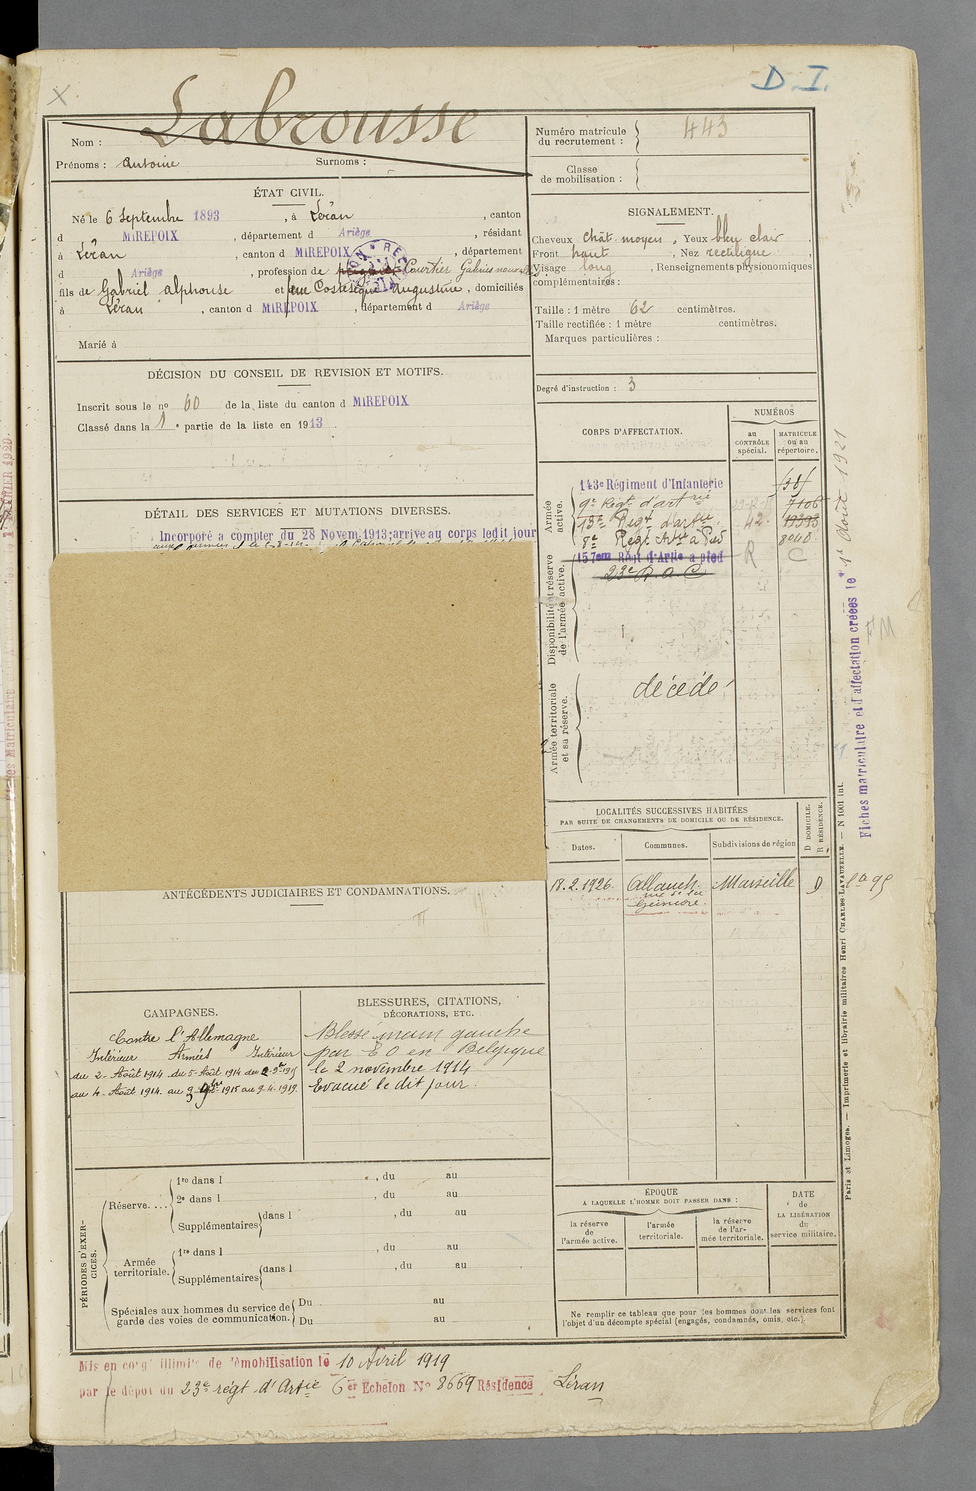 D.I.
Labrousse
Nom :
Prénoms : Antoine Surnoms :
Numéro matricule du recrutement : 443
Classe de mobilisation :
ÉTAT CIVIL.
Né le 6 Septembre 1893, à Léran, canton
d MIREPOIX, département d Ariège, résidant
à Léran, canton d MIREPOIX, département
d Ariège, profession de Courtier
fils de Gabriel Alphonse et feu Costesèque Augustine, domiciliés
à Léran, canton d MIREPOIX, département d Ariège
Marié à
SIGNALEMENT.
Cheveux chât. moyen, Yeux bleu clair,
Front haut, Nez rectiligne,
Visage long, Renseignements physionomiques
complémentaires :
Taille : 1 mètre 62 centimètres.
Taille rectifiée : 1 mètre centimètres.
Marques particulières :
Degré d'instruction : 3
DÉCISION DU CONSEIL DE REVISION ET MOTIFS.
Inscrit sous le no 60 de la liste du canton d MIREPOIX
Classé dans la 1e partie de la liste en 1913.
DÉTAIL DES SERVICES ET MUTATIONS DIVERSES.
Incorporé a compter du 28 Novem. 1913; arrive au corps ledit jour
CORPS D'AFFECTATION.
NUMÉROS
au CONTRÔLE spécial.
MATRICULE ou au répertoire.
Armée active.
143e Régiment d'Infanterie
9e Régt d'artrie 7106
13e Régt d'artrie 42 19393
8e Régt Artie à Pied
Disponibilité et réserve de l'armée active.
157eme Régt d'Artie a pied R C
23e R.A.C
Armée territoriale et sa réserve.
décédé
LOCALITÉS SUCCESSIVES HABITÉES
PAR SUITE DE CHANGEMENTS DE DOMICILE OU DE RÉSIDENCE.
Dates. Communes. Subdivisions de région
D DOMICILE. R RÉSIDENCE.
18.2.1926. Allauch Marseille D
ANTÉCÉDENTS JUDICIAIRES ET CONDAMNATIONS.
CAMPAGNES.
Contre l'Allemagne
Intérieur Armées Intérieur
du 2-Août 1914 du 5-Août 1914
au 4-Août 1914. au 9 1915 au 9.4.1919.
BLESSURES, CITATIONS,
DÉCORATIONS, ETC.
Blessé main gauche
par E O en Belgique
le 2 novembre 1914
Evacué le dit jour.
PÉRIODES D'EXERCICES.
Réserve....
1re dans l , du au
2e dans l , du au
Supplémentaires dans l , du au
Armée territoriale.
1re dans l , du au
Supplémentaires dans l , du au
Spéciales aux hommes du service de garde des voies de communication.
Du au
Du au
ÉPOQUE
A LAQUELLE L'HOMME DOIT PASSER DANS :
la réserve de l'armée active.
l'armée territoriale.
la réserve de l'armée territoriale.
DATE de LA LIBÉRATION du service militaire.
Ne remplir ce tableau que pour les hommes dont les services font
l'objet d'un décompte spécial (engagés, condamnés, omis, etc.).
Mis en congé illimité de démobilisation le 10 Avril 1919
par le dépôt du 23e régt d'Artie 6er Echelon No 8669 Résidence Léran
Fiches matriculaire et d'affectation créées le 1er Août 1921
Paris et Limoges. — Imprimerie et librairie militaires Henri CHARLES-LAVAUZELLE. — N 1001 int.